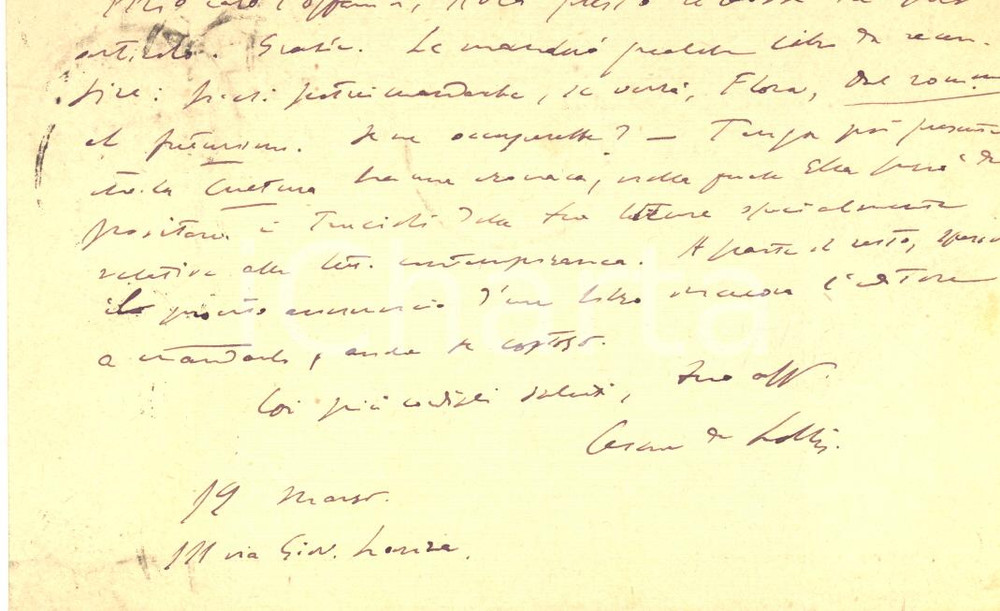 Mio caro
articolo. Grazie. Le manderò qualche libro da recen-
sire: potrei mandarle, se vuole, Flora, Dal roman
al futurismo. Se ne occuperebbe? — Tenga poi presente
che la Cultura ha una cronaca, nella quale Ella può
i della sua letture specialmente
relative alla lett. contemporanea. A parte il resto, spesso
il pronto annuncio d'un libro l'editore
a mandarlo, anche se costoso.
Coi più cordiali saluti, suo aff.
Cesare de Lollis.
19 marzo.
111 via Giov. Lanza.
iCharta